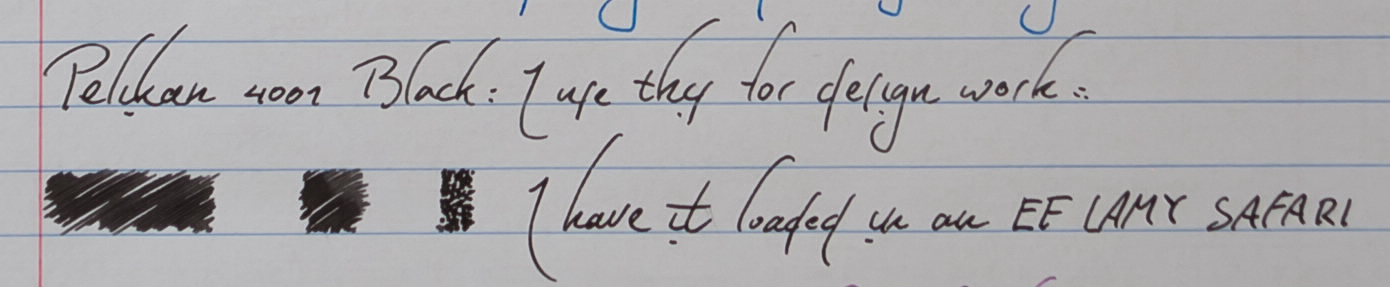 Pelikan 4001 Black: I use this for design work:
I have it loaded in an EF LAMY SAFARI